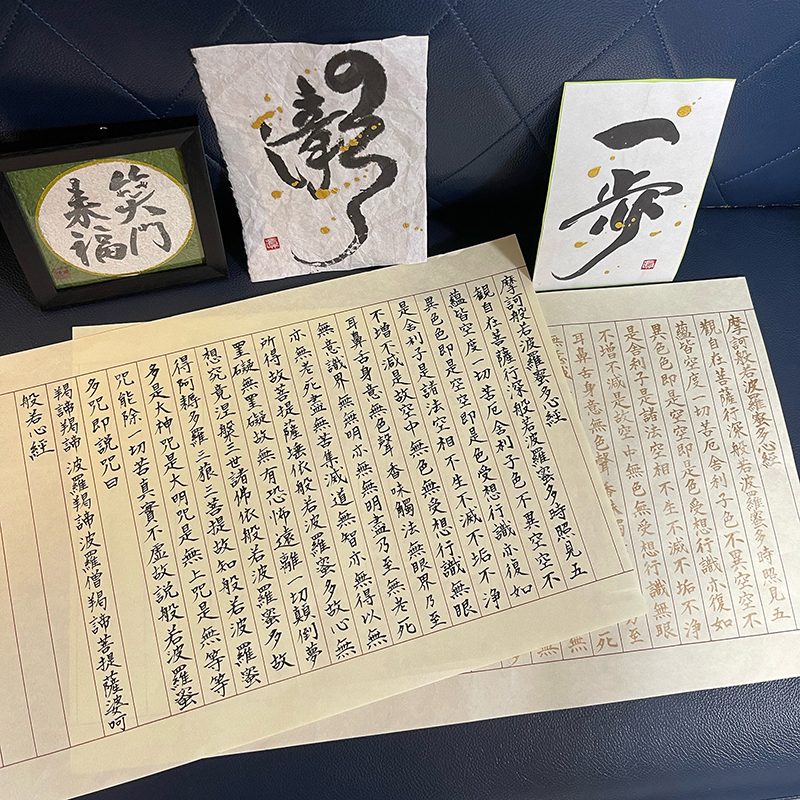 笑門
来福
一歩
摩訶般若波羅蜜多心經
觀自在菩薩行深般若波羅蜜多時照見五
蘊皆空度一切苦厄舍利子色不異空空不
異色色即是空空即是色受想行識亦復如
是舍利子是諸法空相不生不滅不垢不淨
不增不減是故空中無色無受想行識無眼
耳鼻舌身意無色聲香味觸法無眼界乃至
無意識界無無明亦無無明盡乃至無老死
亦無老死盡無苦集滅道無智亦無得以無
所得故菩提薩埵依般若波羅蜜多故心無
罣礙無罣礙故無有恐怖遠離一切顛倒夢
想究竟涅槃三世諸佛依般若波羅蜜多故
得阿耨多羅三藐三菩提故知般若波羅蜜
多是大神咒是大明咒是無上咒是無等等
咒能除一切苦真實不虛故説般若波羅蜜
多咒即説咒曰
羯諦羯諦波羅羯諦波羅僧羯諦菩提薩婆呵
般若心經
摩訶般若波羅蜜多心經
觀自在菩薩行深般若波羅蜜多時照見五
蘊皆空度一切苦厄舍利子色不異空空不
異色色即是空空即是色受想行識亦復如
是舍利子是諸法空相不生不滅不垢不淨
不增不減是故空中無色無受想行識無眼
耳鼻舌身意無色聲香味觸